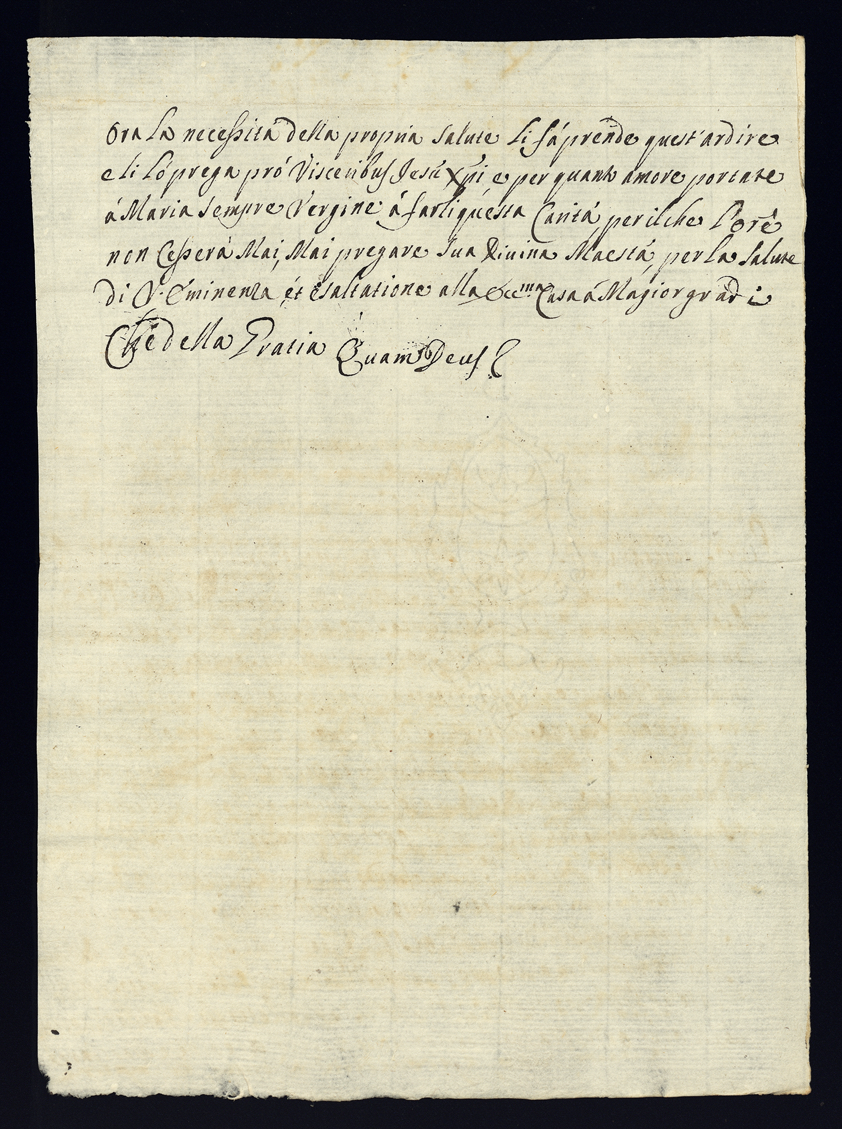 Ora La necessità della propria salute li fà prende quest'ardire
e li Lò prega prò Visceribus Jesù Xpi e per quanto amore portate
à Maria sempre Vergine à farli questa Carità, per il che l'Orê
non Cesserà Mai, Mai pregare sua Divina Maestà, per la salute
di V. Eminenza, ét esaltatione alla Ecc.ma Casa à Magior gradi
Che della Gratia Quam Deus